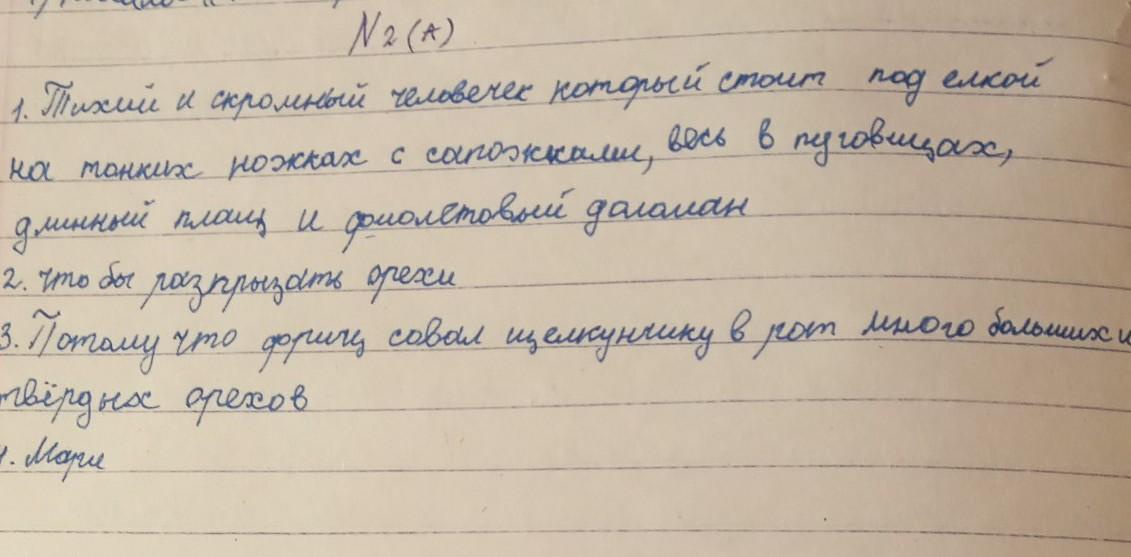 N2 (А)
1. Тихий и скромный человечек который стоит под елкой
на тонких ножках с сапожками, весь в пуговицах,
длинный плащ и фиолетовый доломан
2. что бы разгрызать орехи
3. Потому что фриц совал щелкунчику в рот много больших и
твёрдых орехов
4. Мари